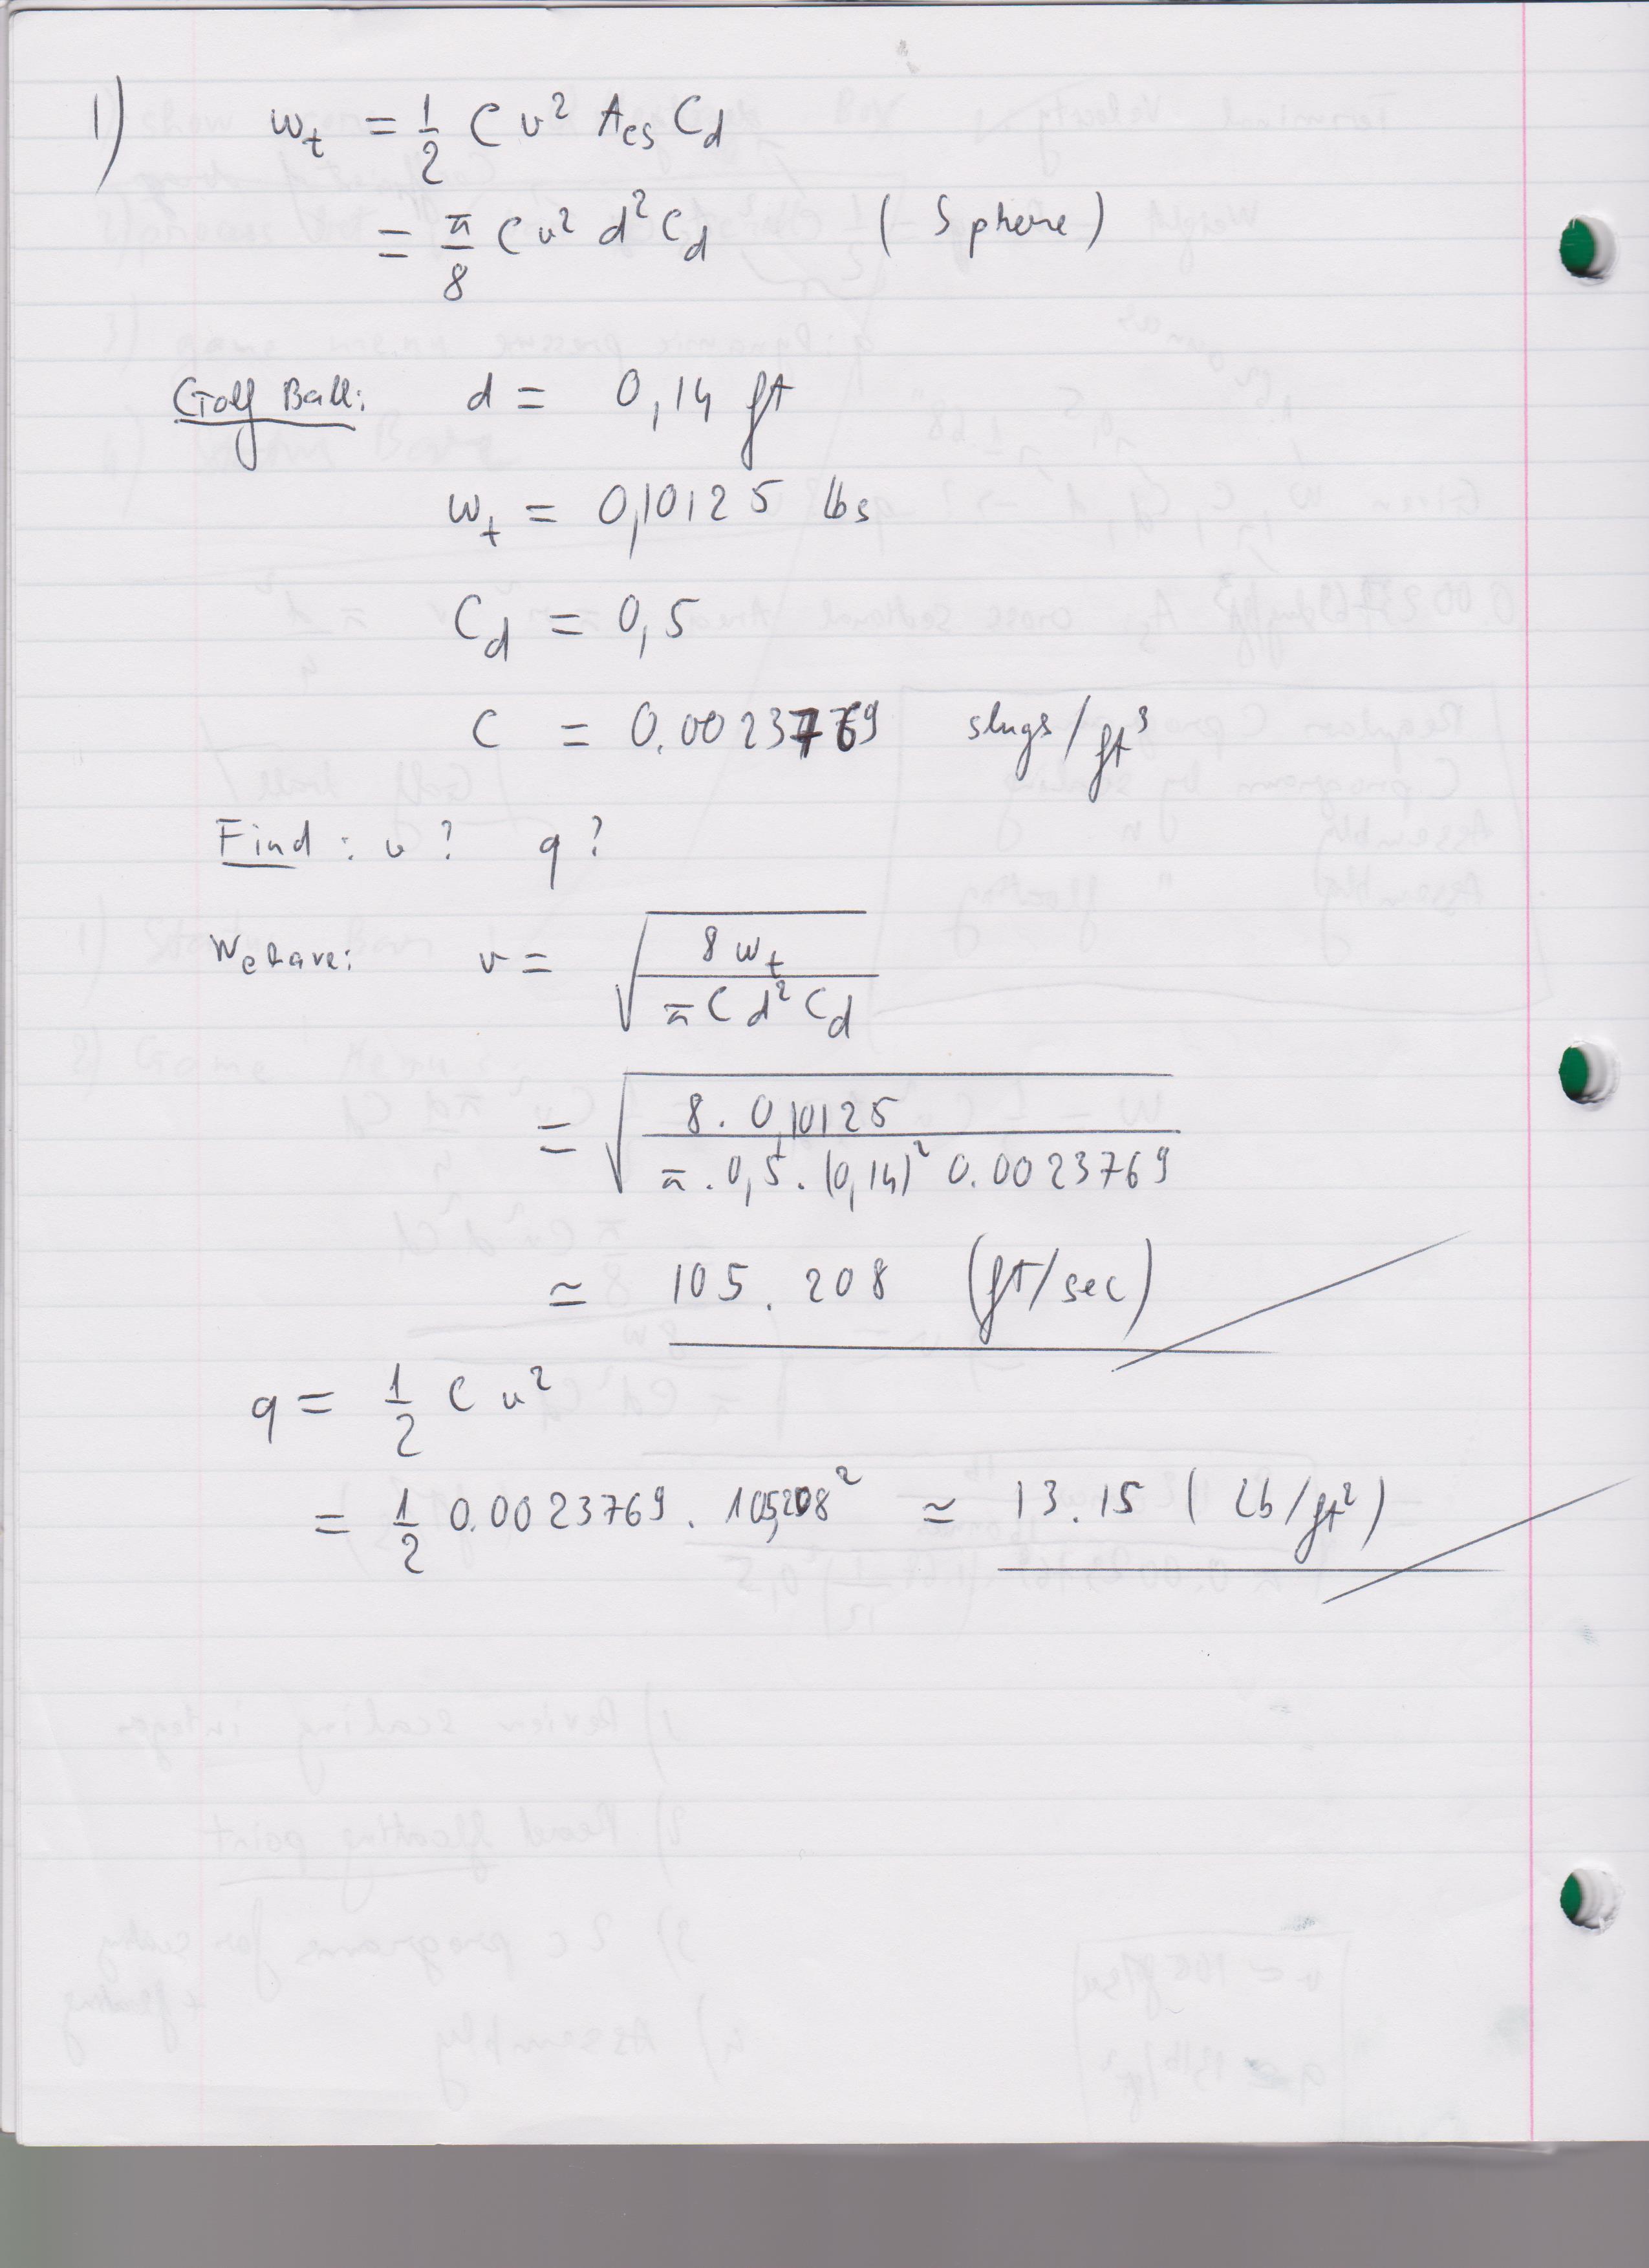 1) wt = 1/2 C v² Acs Cd
= π/8 C v² d² Cd ( Sphere )
Golf Ball: d = 0,14 ft
wt = 0,10125 lbs
Cd = 0,5
C = 0.0023769 slugs/ft³
Find : v ? q ?
We have: v = √(8 wt / π C d² Cd)
= √(8 . 0,10125 / π . 0,5 . (0,14)² 0.0023769)
≃ 105.208 (ft/sec)
q = 1/2 C v²
= 1/2 0.0023769 . 105,208² ≃ 13.15 ( Lb/ft²)